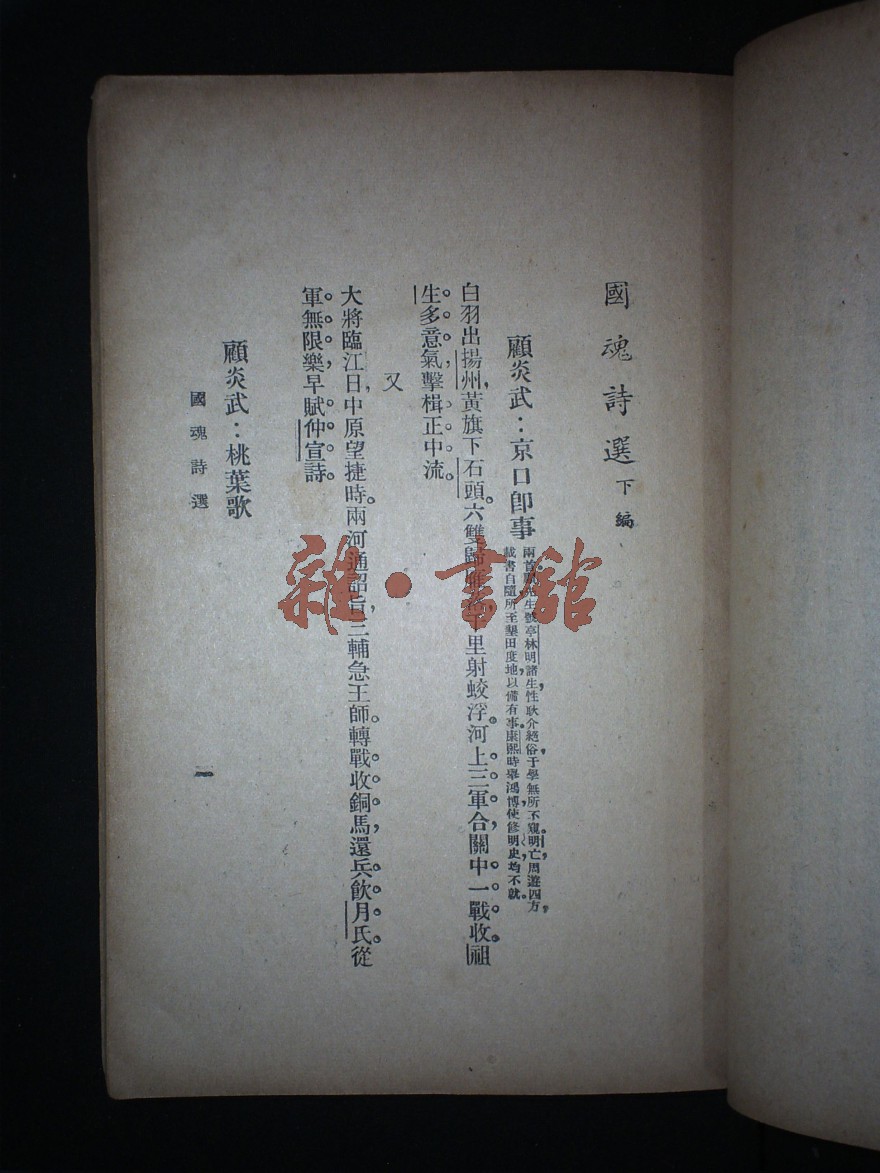 國魂詩選 下編
顧炎武：京口卽事
兩首生號亭林，明諸生，性耿介絕俗，于學無所不窺。明亡，周遊四方，
載書自隨，所至墾田度地，以備有事。康熙時舉鴻博，使修明史，均不就。
白羽出揚州，黃旗下石頭。六雙歸里射蛟浮。河上三軍合，關中一戰收。祖
生多意氣，擊楫正中流。
又
大將臨江日，中原望捷時。兩河通詔旨，三輔急王師。轉戰收銅馬，還兵飮月氏。從
軍無限樂，早賦仲宣詩。
顧炎武：桃葉歌
國魂詩選
一
雜·書館